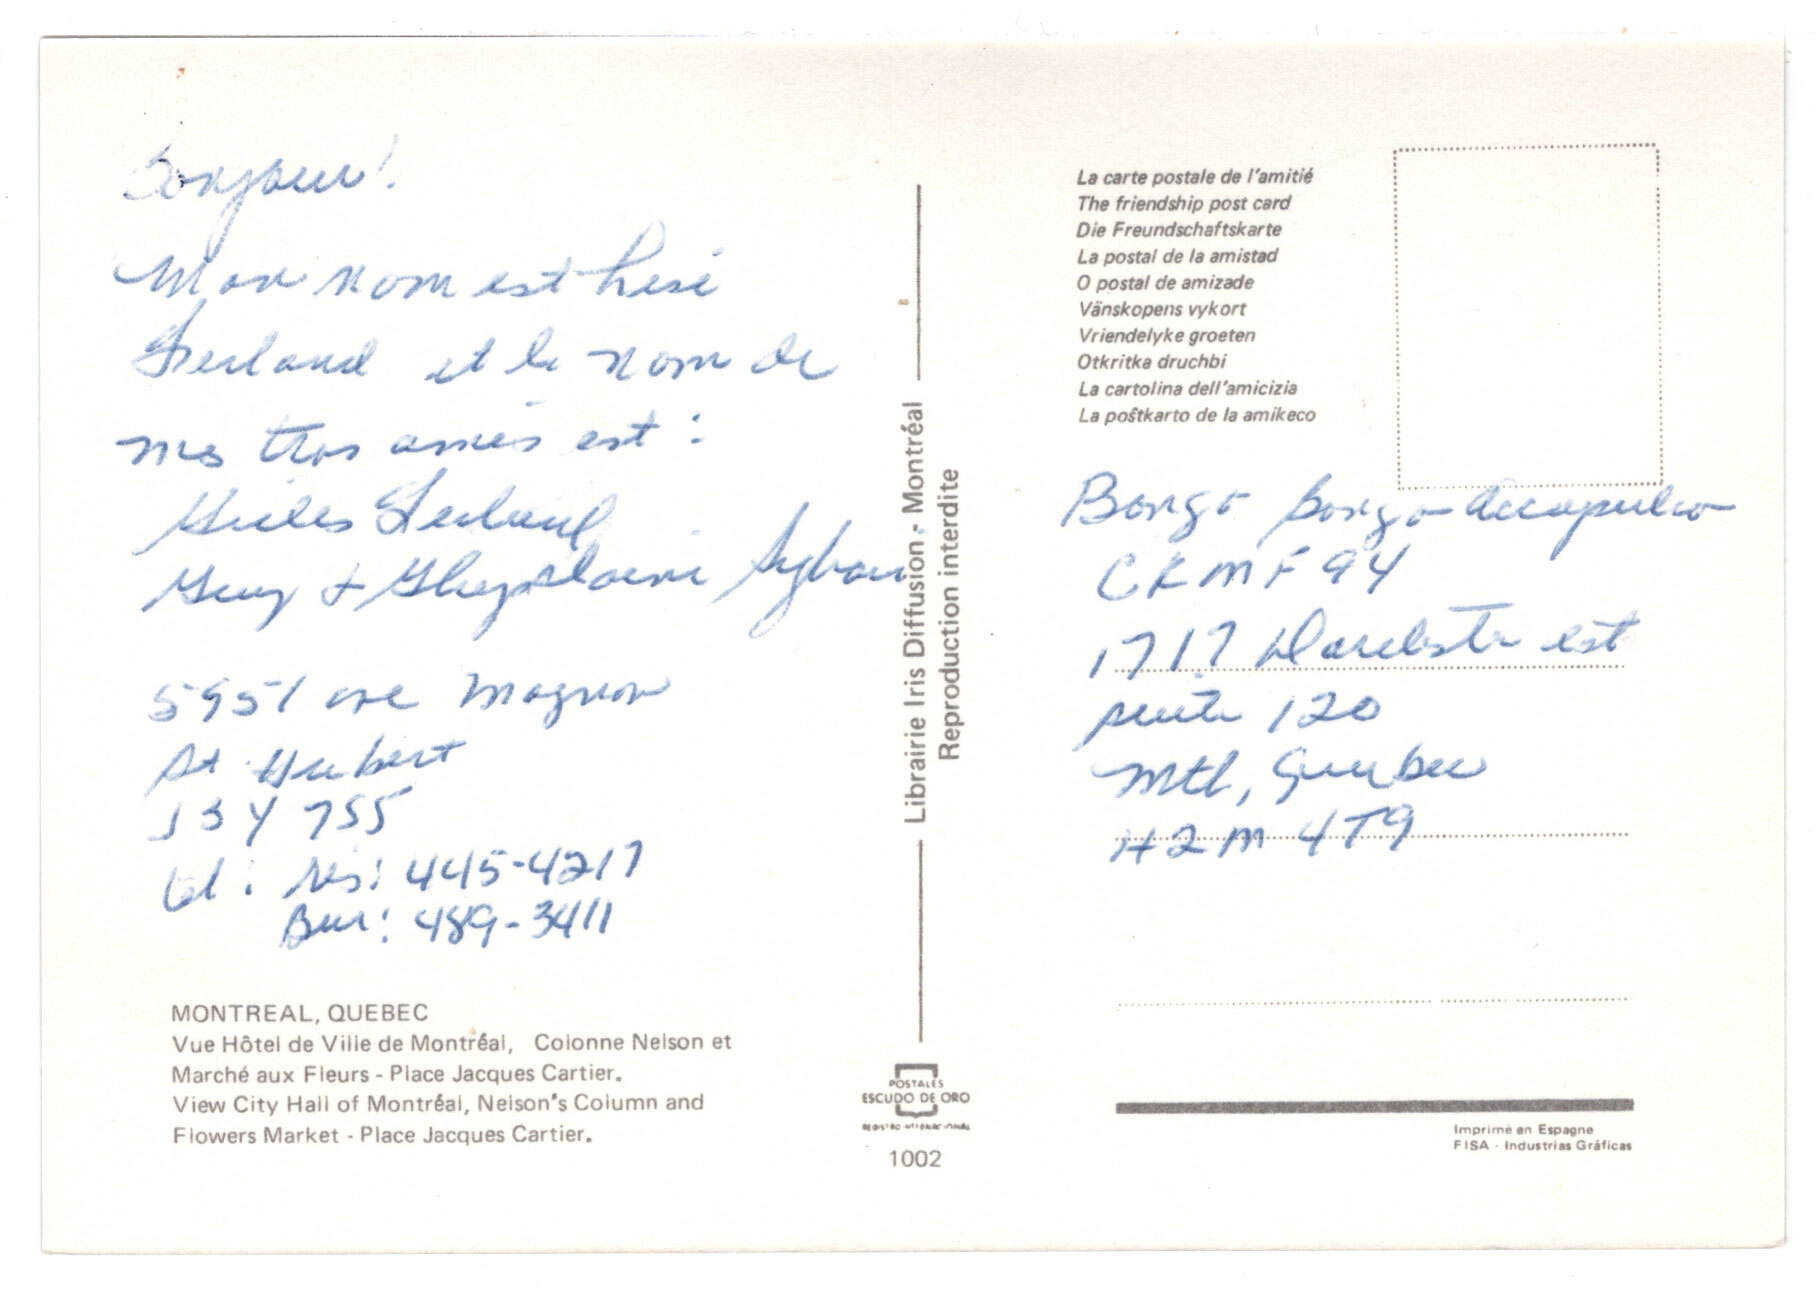 Bonjour!
Mon nom est Lise
Ferland et le nom de
mes trois amis est :
Gilles Ferland
Guy & Ghyslaine
5951 ave Magnon
St Hubert
J3Y 7S5
tel : rés: 445-4217
Bur: 489-3411
MONTREAL, QUEBEC
Vue Hôtel de Ville de Montréal, Colonne Nelson et
Marché aux Fleurs - Place Jacques Cartier.
View City Hall of Montréal, Nelson's Column and
Flowers Market - Place Jacques Cartier.
Librairie Iris Diffusion - Montréal
Reproduction interdite
POSTALES
ESCUDO DE ORO
REGISTRO INTERNACIONAL
1002
La carte postale de l'amitié
The friendship post card
Die Freundschaftskarte
La postal de la amistad
O postal de amizade
Vänskopens vykort
Vriendelyke groeten
Otkritka druchbi
La cartolina dell'amicizia
La poŝtkarto de la amikeco
Bongo Bongo Accapulco
CKMF 94
1717 est
suite 120
Mtl, Quebec
H2M 4T9
Imprimé en Espagne
FISA - Industrias Gráficas